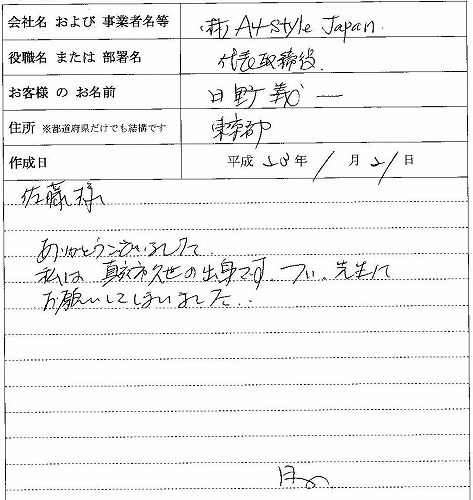 会社名 および 事業者名等 (株) A4-Style Japan.
役職名 または 部署名 代表取締役.
お客様 の お名前 日野 義一
住所 ※都道府県だけでも結構です 東京都
作成日 平成 28 年 / 月 21 日
佐藤 様
ありがとうございました
私は 真庭市久世の出身です. つい. 先生に
お願いしてしまいました..